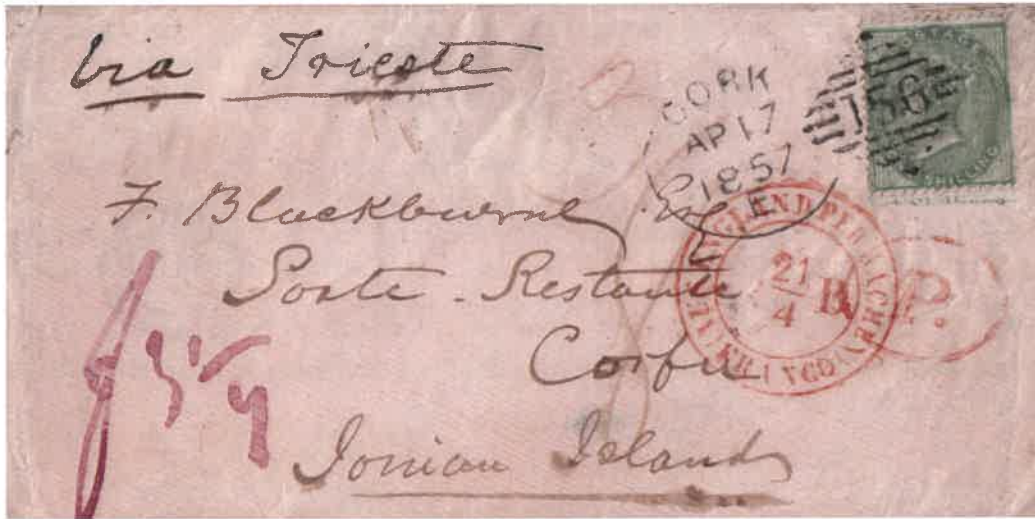 via Trieste
CORK
AP 17
1857
E
156
POSTAGE
ONE SHILLING
F. Blackburne Esq
Poste - Restante
Corfu
Ionian Islands
ENGLAND PER AACHEN
FRANCO
21
4
B
P.